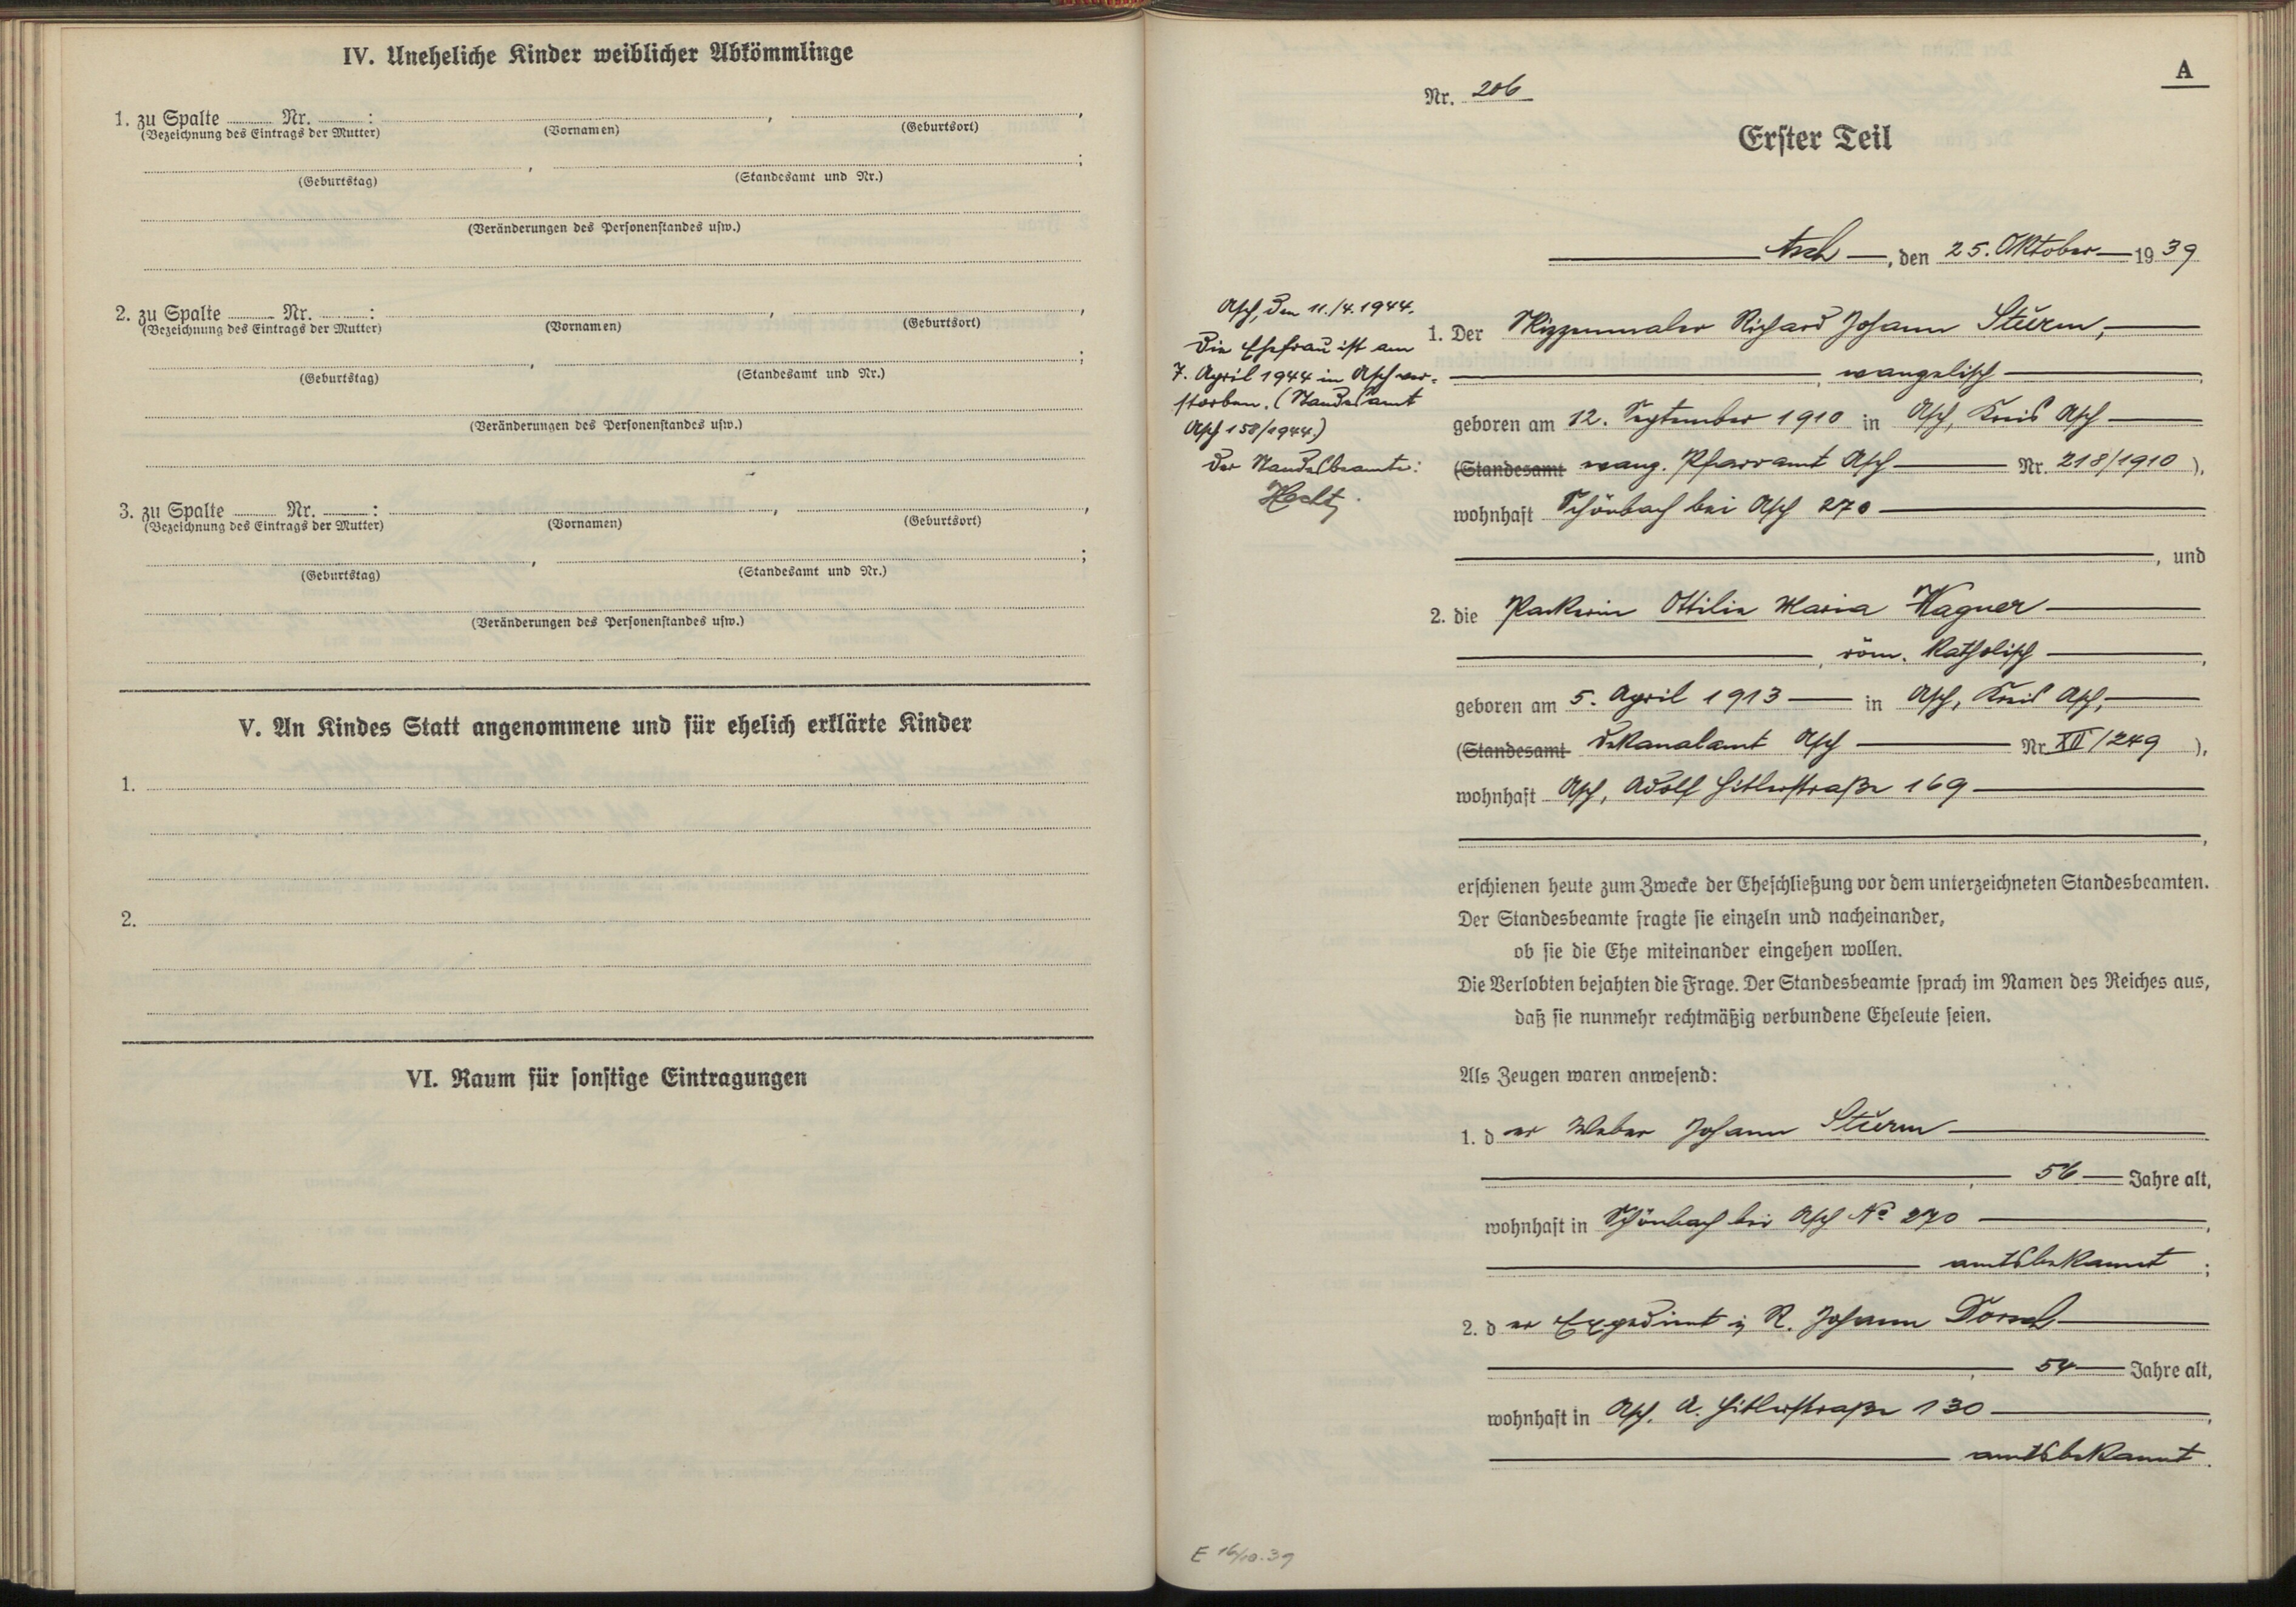 IV. Uneheliche Kinder weiblicher Abkömmlinge
1. zu Spalte ........ Nr. ........ : , ,
(Bezeichnung des Eintrags der Mutter) (Vornamen) (Geburtsort)
, ;
(Geburtstag) (Standesamt und Nr.)
(Veränderungen des Personenstandes usw.)
2. zu Spalte ........ Nr. ........ : , ,
(Bezeichnung des Eintrags der Mutter) (Vornamen) (Geburtsort)
, ;
(Geburtstag) (Standesamt und Nr.)
(Veränderungen des Personenstandes usw.)
3. zu Spalte ........ Nr. ........ : , ,
(Bezeichnung des Eintrags der Mutter) (Vornamen) (Geburtsort)
, ;
(Geburtstag) (Standesamt und Nr.)
(Veränderungen des Personenstandes usw.)
V. An Kindes Statt angenommene und für ehelich erklärte Kinder
1.
2.
VI. Raum für sonstige Eintragungen
A
Nr. 206
Erster Teil
Asch, den 25. Oktober 1939
Asch, den 11./4.1944.
Die Ehefrau ist am
7. April 1944 in Asch ver-
storben. (Standesamt
Asch 158/1944.)
Der Standesbeamte:
Hecht
1. Der Skizzenmaler Richard Johann Sturm,
, evangelisch,
geboren am 12. September 1910 in Asch, Kreis Asch
(Standesamt evang. Pfarramt Asch Nr. 218/1910),
wohnhaft Schönbach bei Asch 270
, und
2. die Packerin Ottilie Maria Wagner
, röm. katholisch,
geboren am 5. April 1913 in Asch, Kreis Asch,
(Standesamt Dekanalamt Asch Nr. XII/249),
wohnhaft Asch, Adolf Hitlerstraße 169
,
erschienen heute zum Zwecke der Eheschließung vor dem unterzeichneten Standesbeamten.
Der Standesbeamte fragte sie einzeln und nacheinander,
ob sie die Ehe miteinander eingehen wollen.
Die Verlobten bejahten die Frage. Der Standesbeamte sprach im Namen des Reiches aus,
daß sie nunmehr rechtmäßig verbundene Eheleute seien.
Als Zeugen waren anwesend:
1. der Weber Johann Sturm
, 56 Jahre alt,
wohnhaft in Schönbach bei Asch No 270,
amtsbekannt;
2. der Expedient i. R. Johann Dorsch
, 54 Jahre alt,
wohnhaft in Asch, A. Hitlerstraße 130,
amtsbekannt.
E 16/10.39